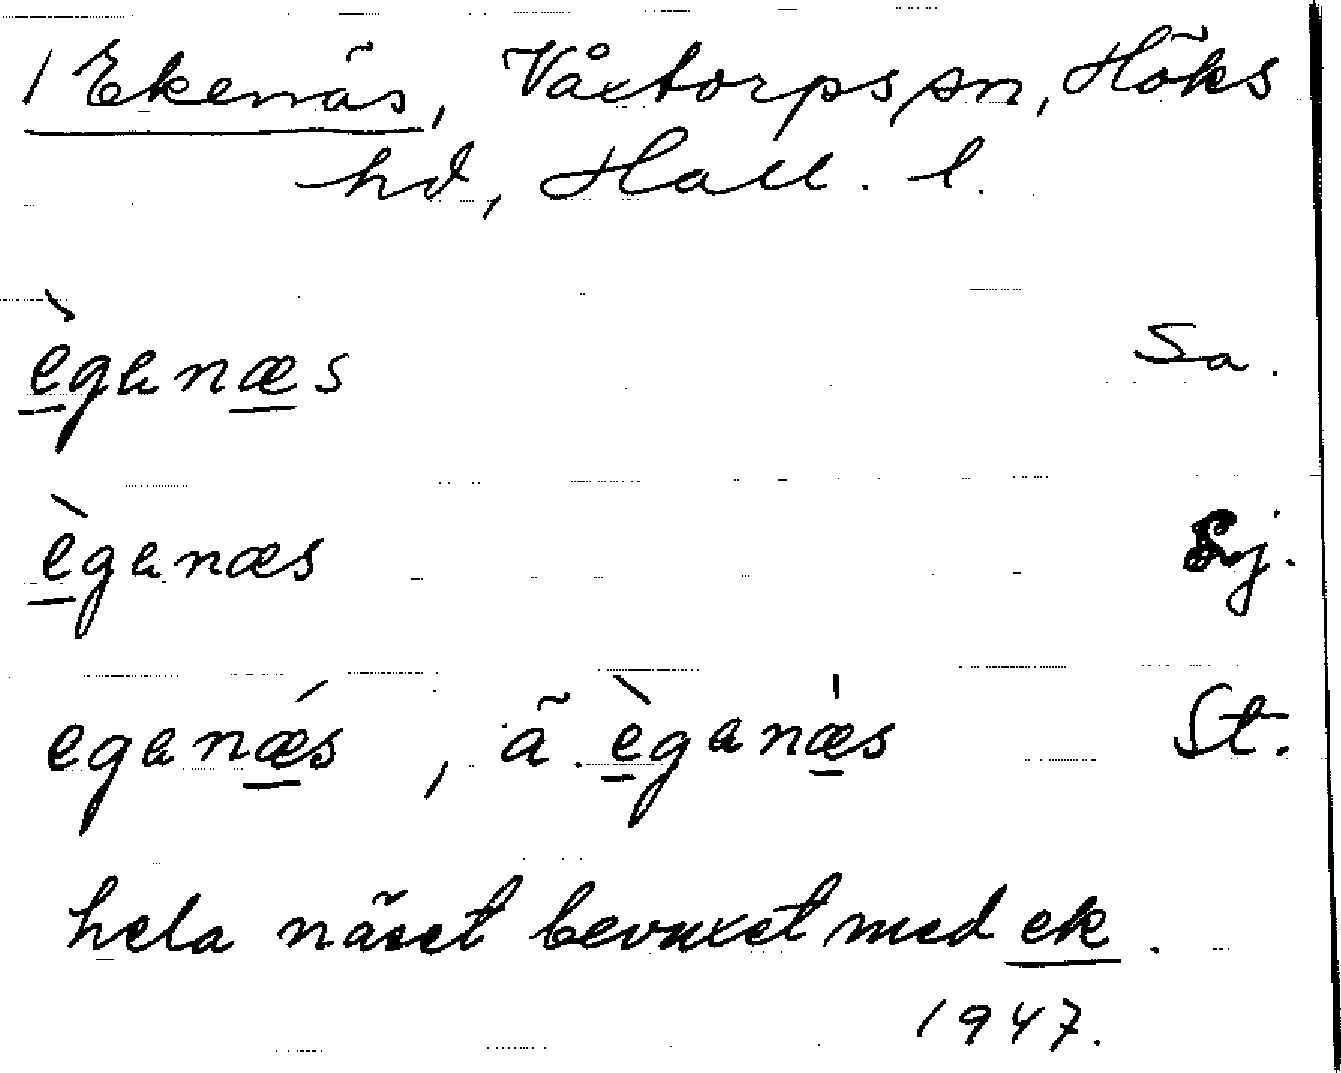 1 Ekenäs, Våxtorps sn, Höks
hd, Hall. l.
ègenæs Sa.
ègenæs Sj.
egenǽs, ä. ègenæ̍s St.
hela näset bevuxet med ek.
1947.